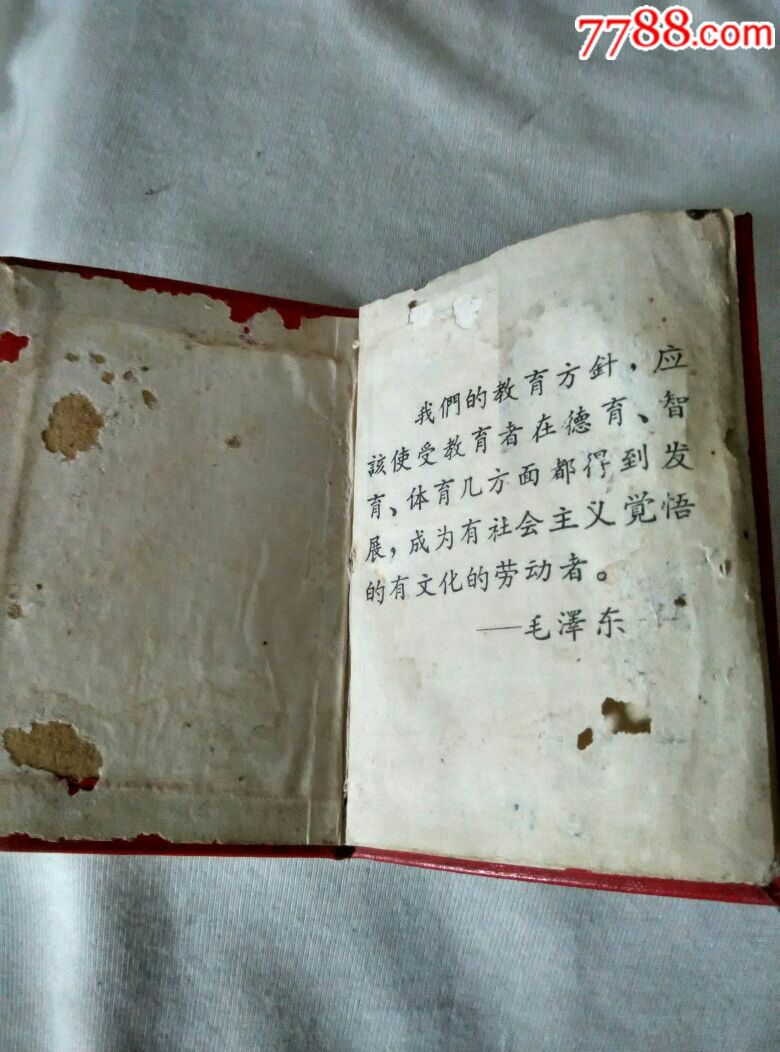 7788.com
我們的教育方針，应
該使受教育者在德育、智
育、体育几方面都得到发
展，成为有社会主义覚悟
的有文化的劳动者。
——毛澤东